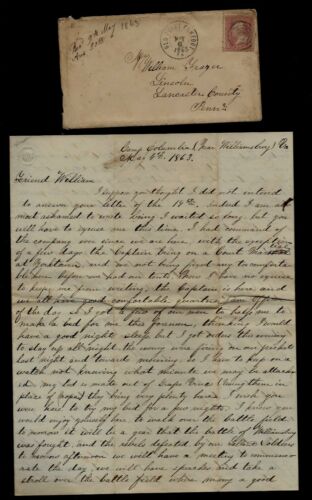 Rec'd 9th May 1863
Ans. 20th
OLD POINT COMFORT
MAY
1863
Mr
William Frazer
Lincoln
Lancaster County
Penna
Camp Columbia (Near Williamsburg) Va
May 4th, 1863.
Friend William
I suppose you thought I did not intend
to answer your letter of the 18th. Indeed I am al
most ashamed to write being I waited so long, but you
will have to excuse me this time. I had command of
the company ever since we are here, with the exception
of a few days, the Captain being on a Court Martial
at Yorktown and we not being fixed any to write
before when we had no tents. Now I have no excuse
to keep me from writing, the Captain is here and
we all have good comfortable quarters. I am officer
of the day. So I got a few of our men to help me to
make a bed for me this forenoon, thinking I would
have a good night's sleep but I got orders this evening
to stay up all night the enemy was firing on our pickets
last night and towards morning. So I have to keep on a
watch not knowing what minute we may be attack
ed, my bed is made out of Grape Vine (having them in
place of ropes) they bring very plenty here. I wish you
were here to try my bed for a few nights. I know you
would enjoy yourself too to walk over the battle field.
to morrow it will be a year that the battle of Williamsburg
was fought, and the rebels defeated by our Union Soldiers
to morrow afternoon we will have a meeting to commemo-
rate the day we will have speeches and take a
stroll over the battle field where many a good